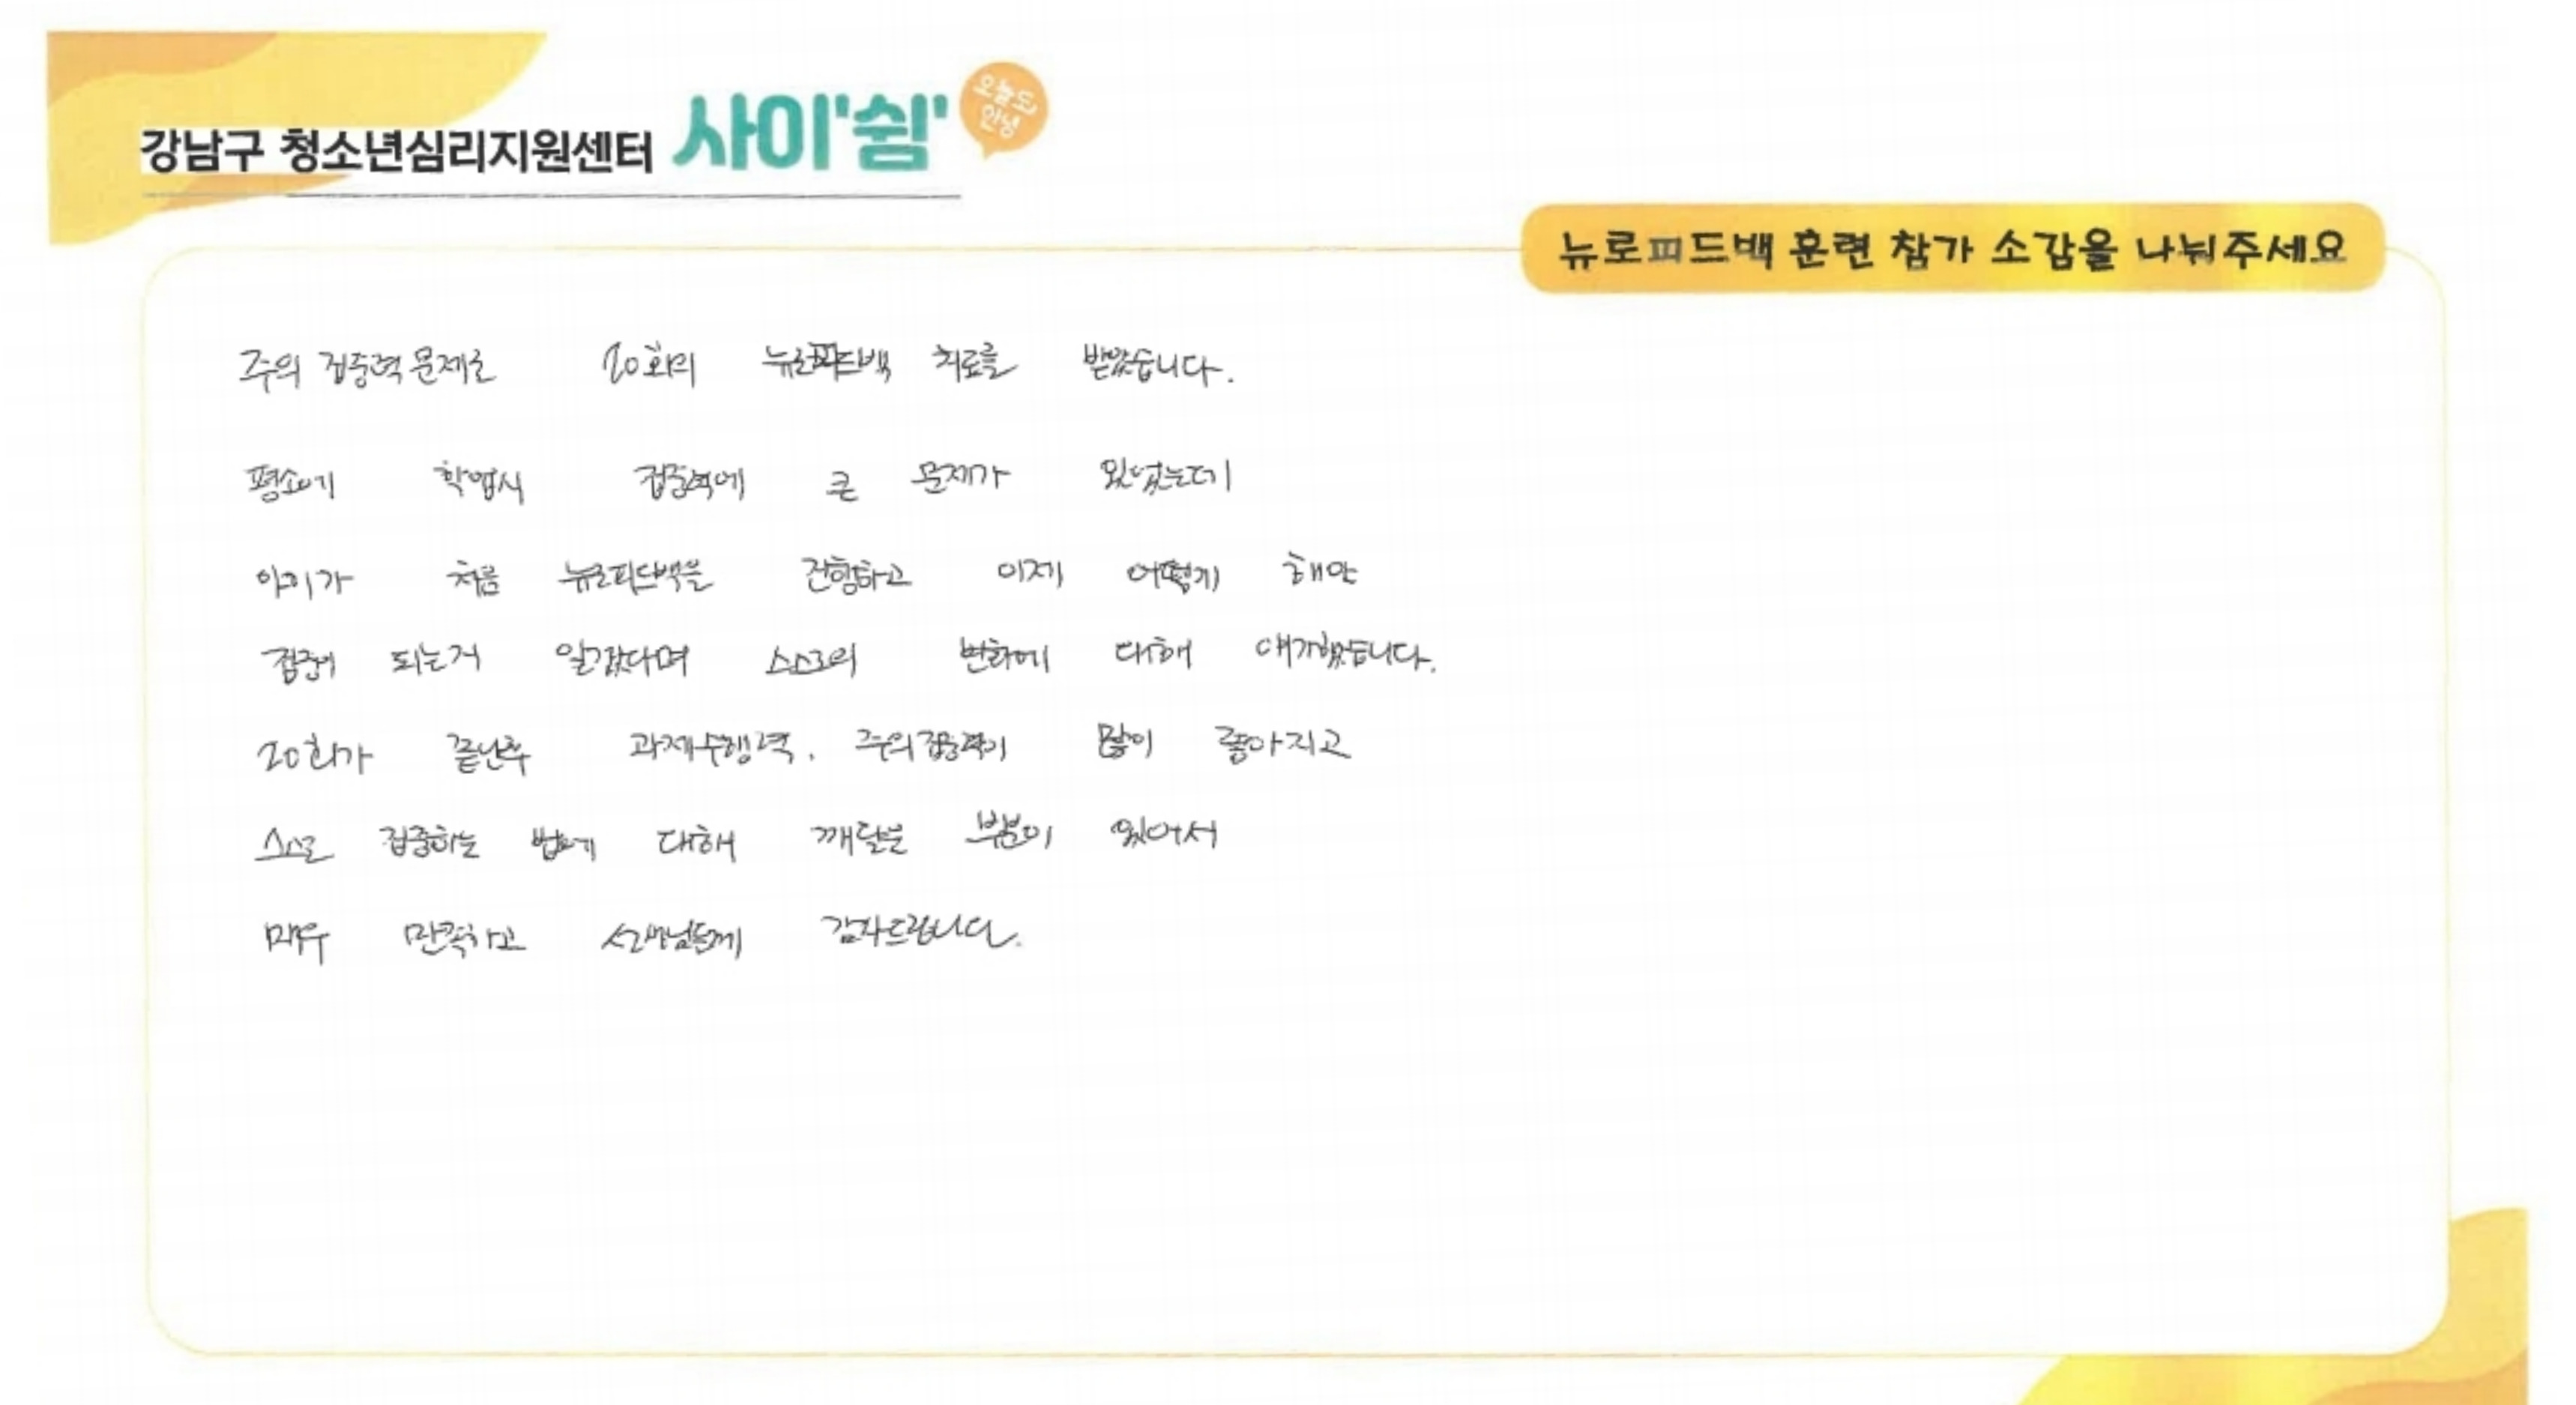 오늘도
안녕
강남구 청소년심리지원센터 사이'쉼'
뉴로피드백 훈련 참가 소감을 나눠주세요
주의 집중력 문제로 20회의 뉴로피드백 치료를 받았습니다.
평소에 학업시 집중력에 큰 문제가 있었는데
아이가 처음 뉴로피드백을 진행하고 이제 어떻게 해야
집중이 되는거 알겠다며 스스로의 변화에 대해 얘기했습니다.
20회가 끝난후 과제수행력, 주의집중력이 많이 좋아지고
스스로 집중하는 법에 대해 깨달은 부분이 있어서
매우 만족하고 선생님들께 감사드립니다.